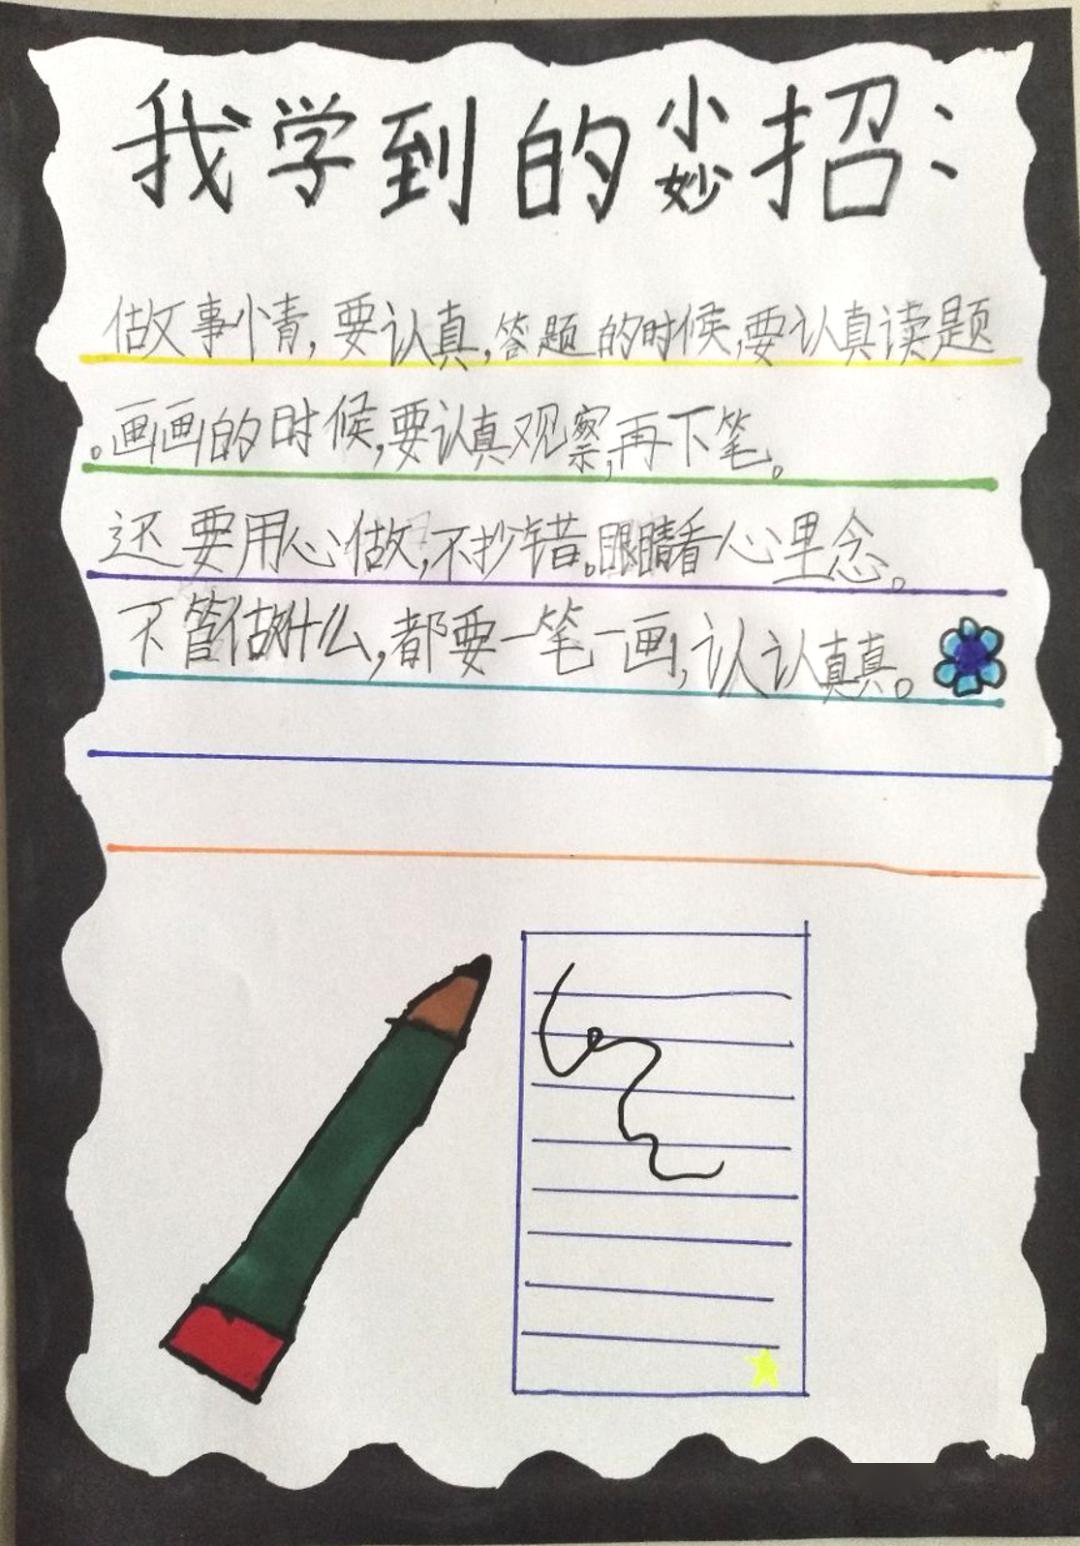 我学到的小妙招：
做事情，要认真，答题的时候，要认真读题
。画画的时候，要认真观察，再下笔。
还要用心做，不抄错。眼睛看心里念。
不管做什么，都要一笔一画，认认真真。